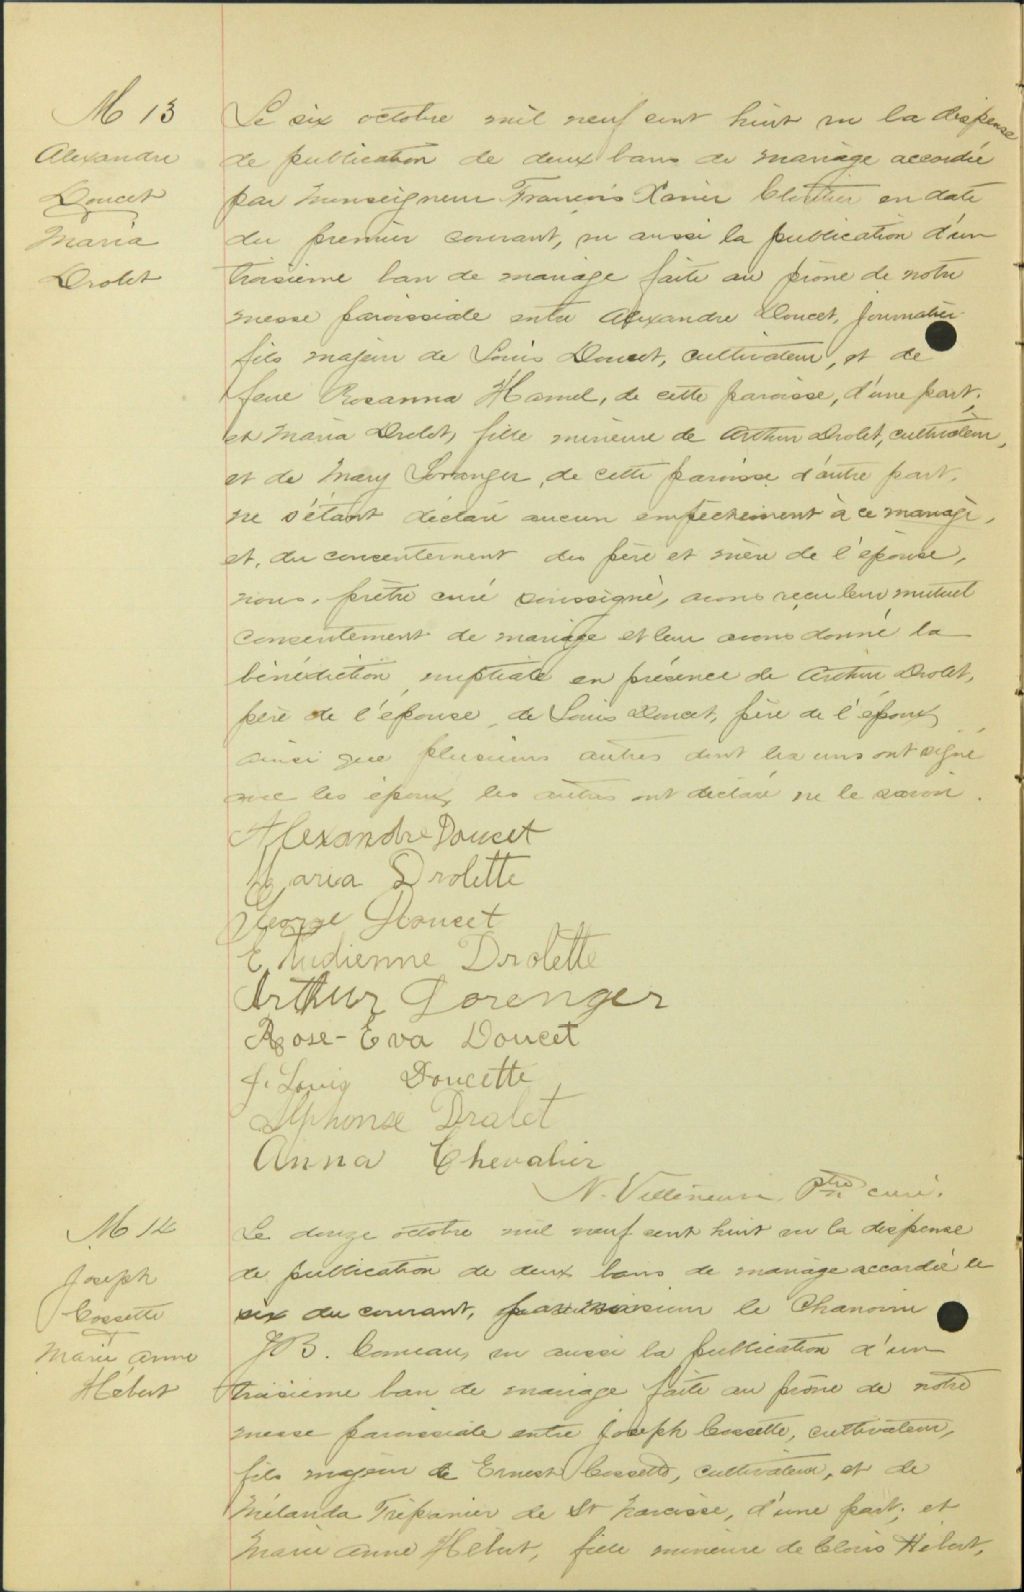 M 13
Alexandre
Doucet
&
Maria
Drolet
Le six octobre mil neuf cent huit vu la dispense
de publication de deux bans de mariage accordée
par Monseigneur François Xavier Cloutier en date
du premier courant, vu aussi la publication d'un
troisième ban de mariage faite au prône de notre
messe paroissiale entre Alexandre Doucet, journalier
fils majeur de Louis Doucet, cultivateur, et de
feue Rosanna Hamel, de cette paroisse, d'une part;
et Maria Drolet, fille mineure de Arthur Drolet, cultivateur,
et de Mary Loranger, de cette paroisse d'autre part.
ne s'étant déclaré aucun empêchement à ce mariage,
et, du concentement des père et mère de l'épouse,
nous, prêtre curé soussigné, avons reçu leur mutuel
concentement de mariage et leur avons donné la
bénédiction nuptiale en présence de Arthur Drolet,
père de l'épouse, de Louis Doucet, père de l'époux,
ainsi que plusieurs autres dont les uns ont signé
avec les époux, les autres ont déclaré ne le savoir.
Alexandre Doucet
Maria Drolette
George Doucet
Drolette
Arthur Lorenger
Rose-Eva Doucet
J. Louis Doucette
Alphonse Dralet
Anna Chevalier
N. Villeneuve, Ptre curé.
M 14
Joseph
Cossette
&
Marie Anne
Hébert
Le douze octobre mil neuf cent huit vu la dispense
de publication de deux bans de mariage accordée le
six du courant, par monsieur le Chanoine
J B. Comeau, vu aussi la publication d'un
troisième ban de mariage faite au prône de notre
messe paroissiale entre Joseph Cossette, cultivateur,
fils majeur de Ernest Cossette, cultivateur, et de
Mélanda Trépanier de St Narcisse, d'une part; et
Marie Anne Hébert, fille mineure de Clovis Hébert,